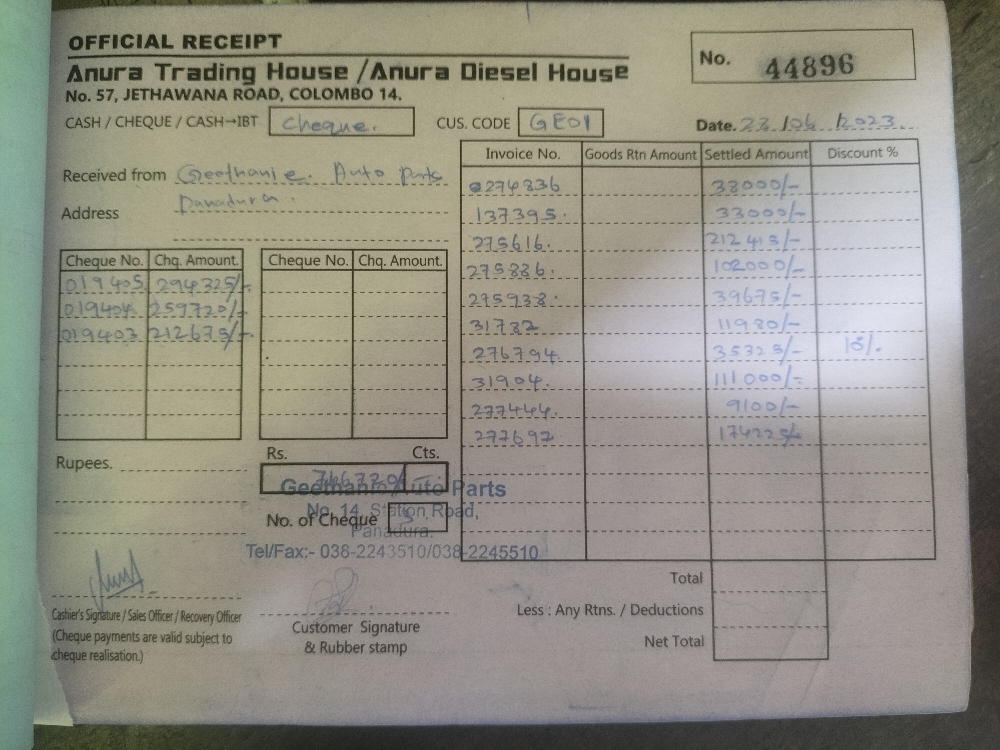 OFFICIAL RECEIPT
Anura Trading House /Anura Diesel House
No. 57, JETHAWANA ROAD, COLOMBO 14.
No. 44896
CASH / CHEQUE / CASH→IBT cheque.
CUS. CODE GE01
Date. 23/06/2023
Received from Geethanie. Auto parts
Address Panadura.
Cheque No. Chq. Amount.
019405 294325/-
019404 259720/-
019403 212675/-
Cheque No. Chq. Amount.
Rupees.
Rs. Cts.
766720/-
No. of Cheque 3
Geethanie Auto Parts
No. 14, Station Road,
Panadura.
Tel/Fax:- 038-2243510/038-2245510
Cashier's Signature / Sales Officer / Recovery Officer
(Cheque payments are valid subject to
cheque realisation.)
Customer Signature
& Rubber stamp
Invoice No. Goods Rtn Amount Settled Amount Discount %
274836 33000/-
137395. 33000/-
275616. 212415/-
275886. 102000/-
275938. 39675/-
31782 11980/-
276794 35325/-
31904. 111000/-
277444. 9100/-
277697 174225/-
Total
Less : Any Rtns. / Deductions
Net Total